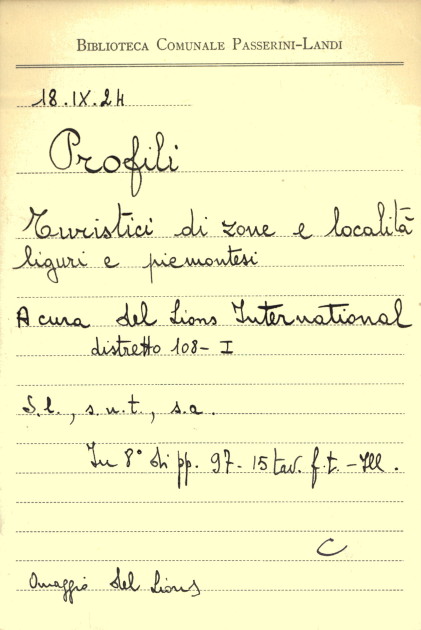 BIBLIOTECA COMUNALE PASSERINI-LANDI
18.IX.24
Profili
Turistici di zone e località
liguri e piemontesi
A cura del Lions International
distretto 108-I
S.l., s.n.t., s.a.
In 8° di pp. 97-15 tav. f.t. - Ill.
C
Omaggio del Lions